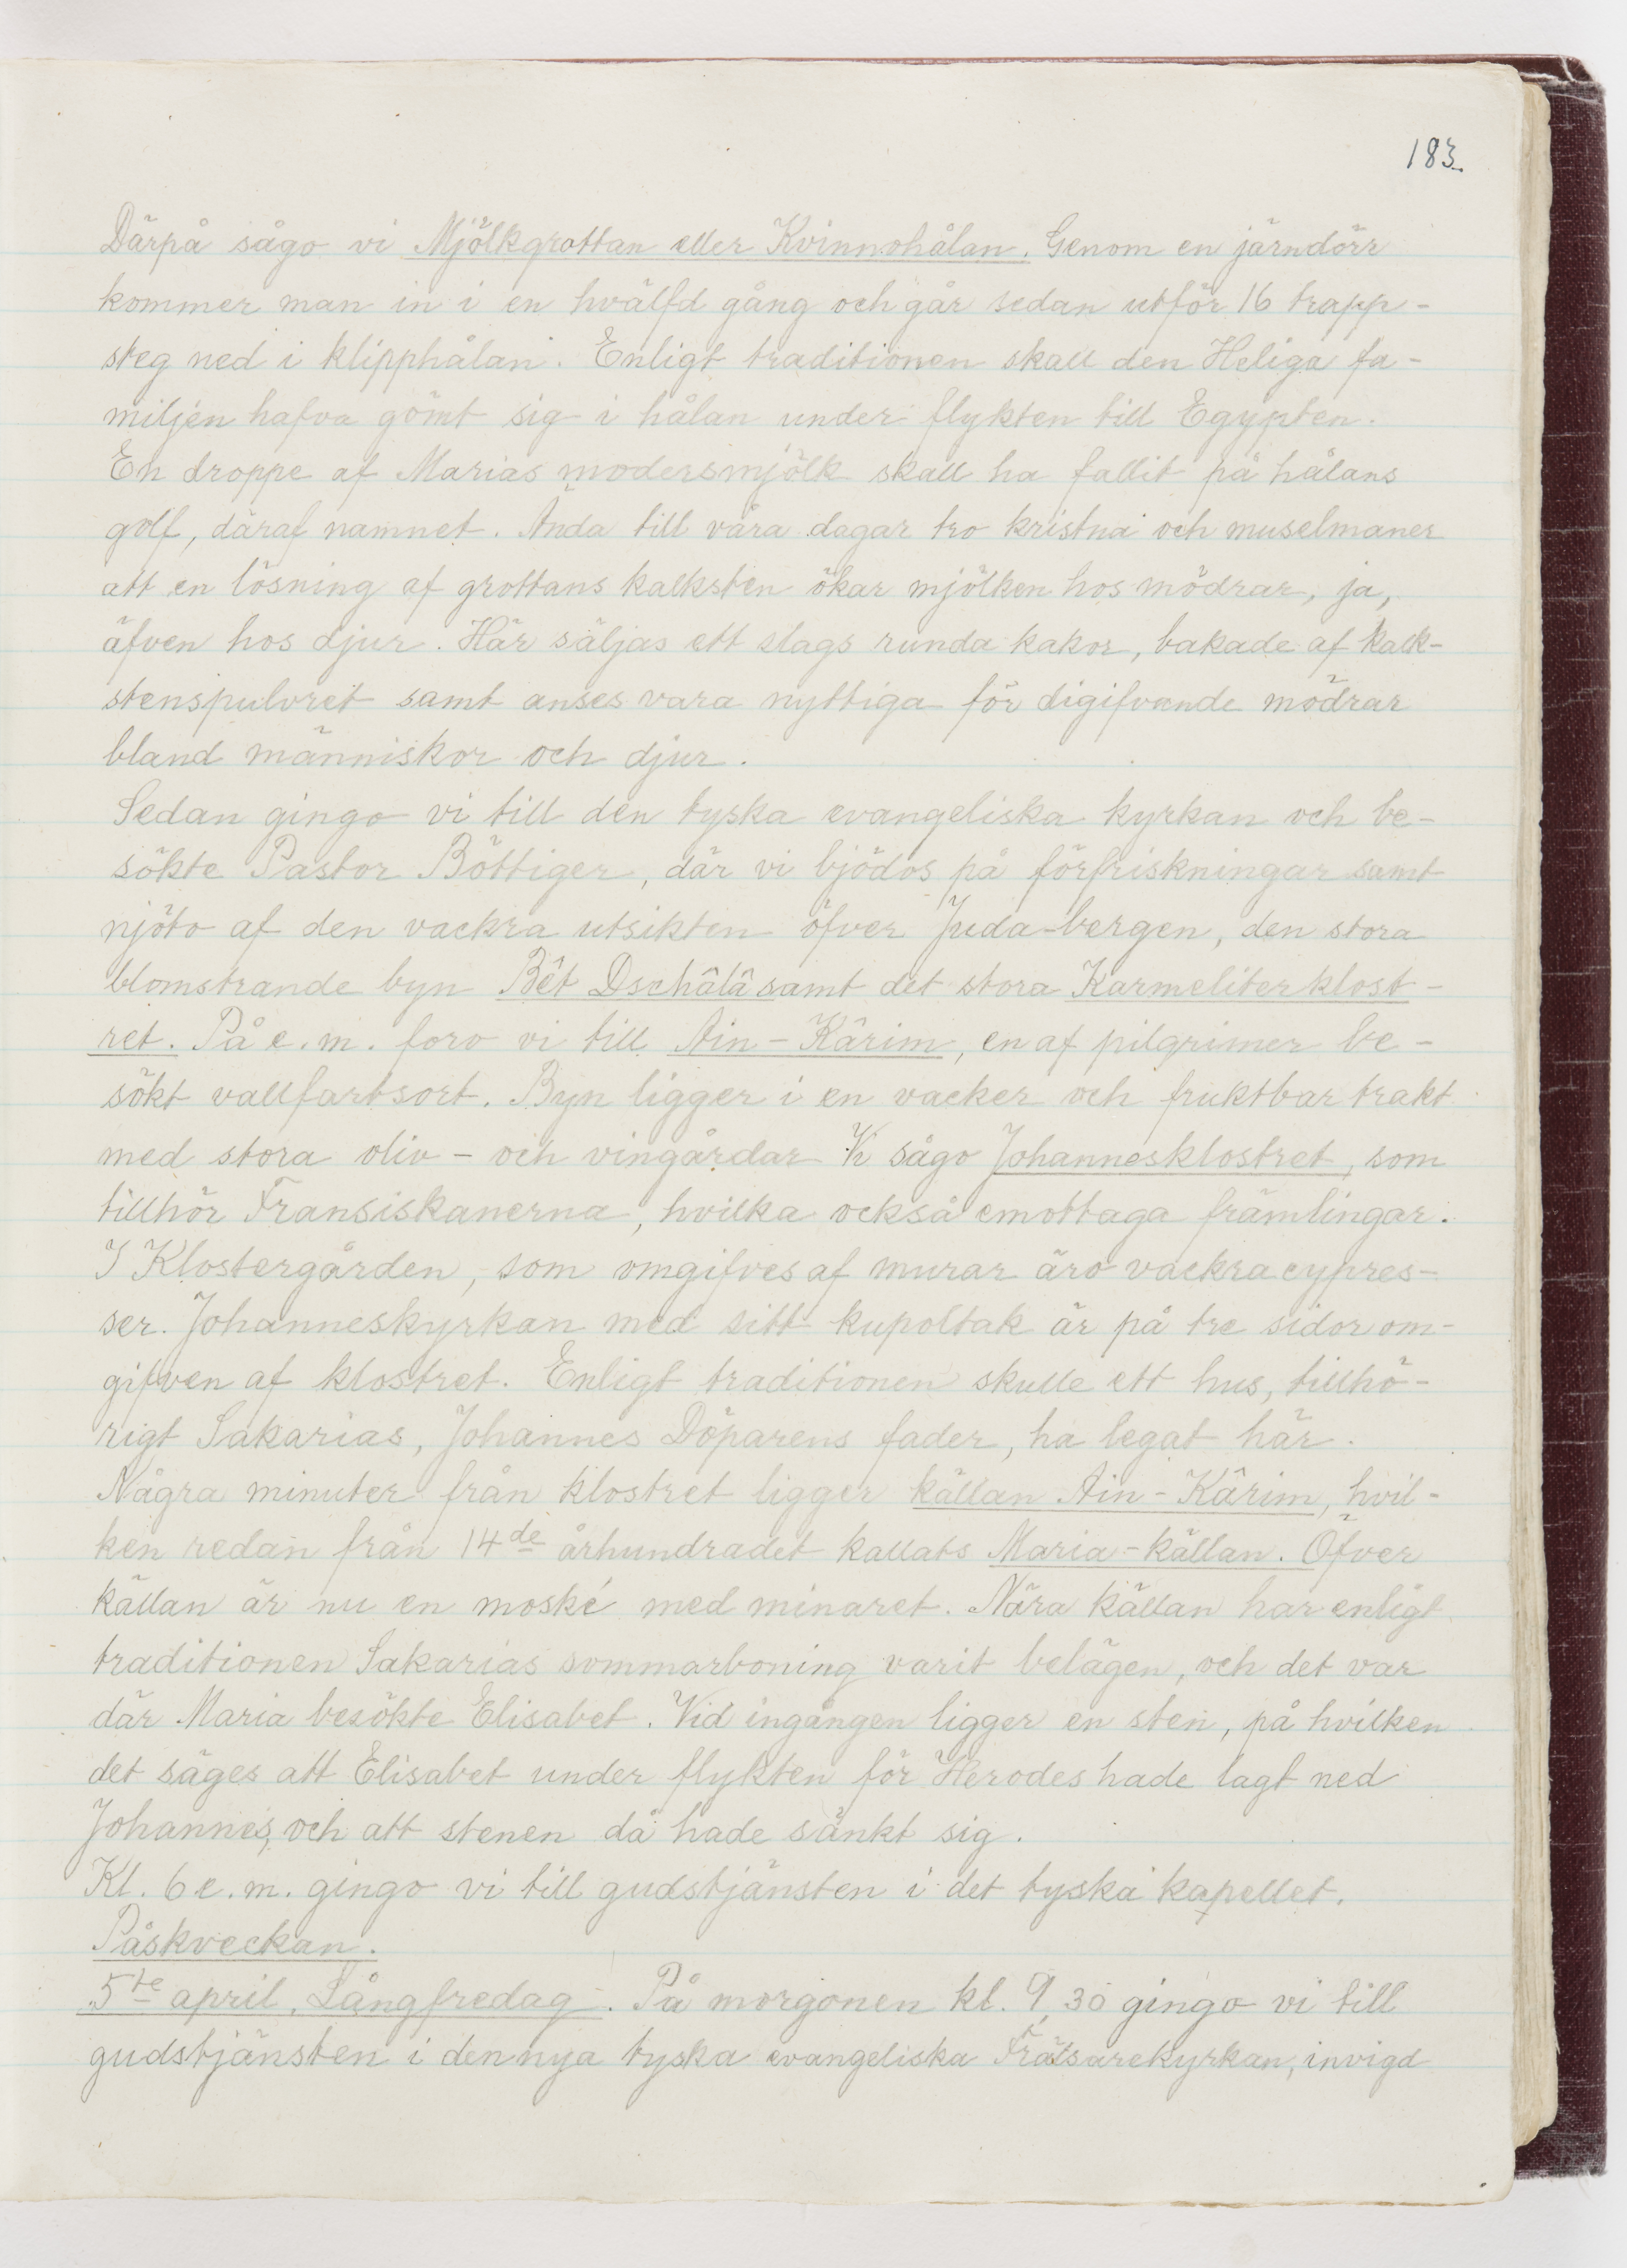 183.
Därpå sågo vi Mjölkgrottan eller Kvinnohålan. Genom en järndörr
kommer man in i en hvälfd gång och går sedan utför 16 trapp-
steg ned i klipphålan. Enligt traditionen skall den Heliga fa-
miljen hafva gömt sig i hålan under flykten till Egypten.
En droppe af Marias modersmjölk skall ha fallit på hålans
golf, däraf namnet. Ända till våra dagar tro kristna och muselmaner
att en lösning af grottans kalksten ökar mjölken hos mödrar, ja,
äfven hos djur. Här säljas ett slags runda kakor, bakade af kalk-
stenspulvret samt anses vara nyttiga för digifvande mödrar
bland människor och djur.
Sedan gingo vi till den tyska evangeliska kyrkan och be-
sökte Pastor Böttiger, där vi bjödos på förfriskningar samt
njöto af den vackra utsikten öfver Juda-bergen, den stora
blomstrande byn Bêt Dschâlâ samt det stora Karmeliterklost-
ret. På e.m. foro vi till Ain-Kârim, en af pilgrimer be-
sökt vallfartsort. Byn ligger i en vacker och fruktbar trakt
med stora oliv- och vingårdar Vi sågo Johannesklostret, som
tillhör Fransiskanerna, hvilka också emottaga främlingar.
I Klostergården, som omgifves af murar äro vackra cypres-
ser. Johanneskyrkan med sitt kupoltak är på tre sidor om-
gifven af klostret. Enligt traditionen skulle ett hus, tillhö-
rigt Sakarias, Johannes Döparens fader, ha legat här.
Några minuter från klostret ligger källan Ain-Kârim, hvil-
ken redan från 14de århundradet kallats Maria-källan. Öfver
källan är nu en moské med minaret. Nära källan har enligt
traditionen Sakarias sommarboning varit belägen, och det var
där Maria besökte Elisabet. Vid ingången ligger en sten, på hvilken
det säges att Elisabet under flykten för Herodes hade lagt ned
Johannes, och att stenen då hade sänkt sig.
Kl. 6 e.m. gingo vi till gudstjänsten i det tyska kapellet.
Påskveckan.
5te april, Långfredag. På morgonen kl. 9,30 gingo vi till
gudstjänsten i den nya tyska evangeliska Frälsarekyrkan, invigd